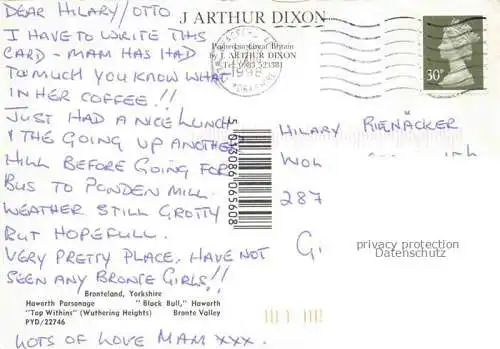 DEAR HILARY/OTTO
I HAVE TO WRITE THIS
CARD - MAM HAS HAD
TO MUCH YOU KNOW WHAT
IN HER COFFEE!!
JUST HAD A NICE LUNCH
& THE GOING UP ANOTHER
HILL BEFORE GOING FOR
BUS TO PONDEN MILL.
WEATHER STILL GROTTY
BUT HOPEFULL.
VERY PRETTY PLACE, HAVE NOT
SEEN ANY BRONTE GIRLS!!
Bronteland, Yorkshire
Haworth Parsonage "Black Bull," Haworth
"Top Withins" (Wuthering Heights) Bronte Valley
PYD/22746
LOTS OF LOVE MAM XXX.
J ARTHUR DIXON
Great Britain
by J. ARTHUR DIXON
30P
5 013086 065608
HILARY RIENÄCKER
287
G.
privacy protection
Datenschutz